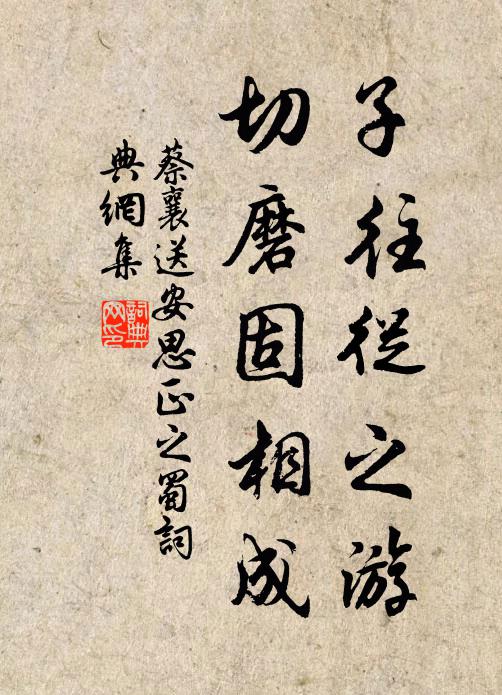 子往從之游
切磨固相成
蔡襄送安思正之蜀詞
典網集
詞典
网印